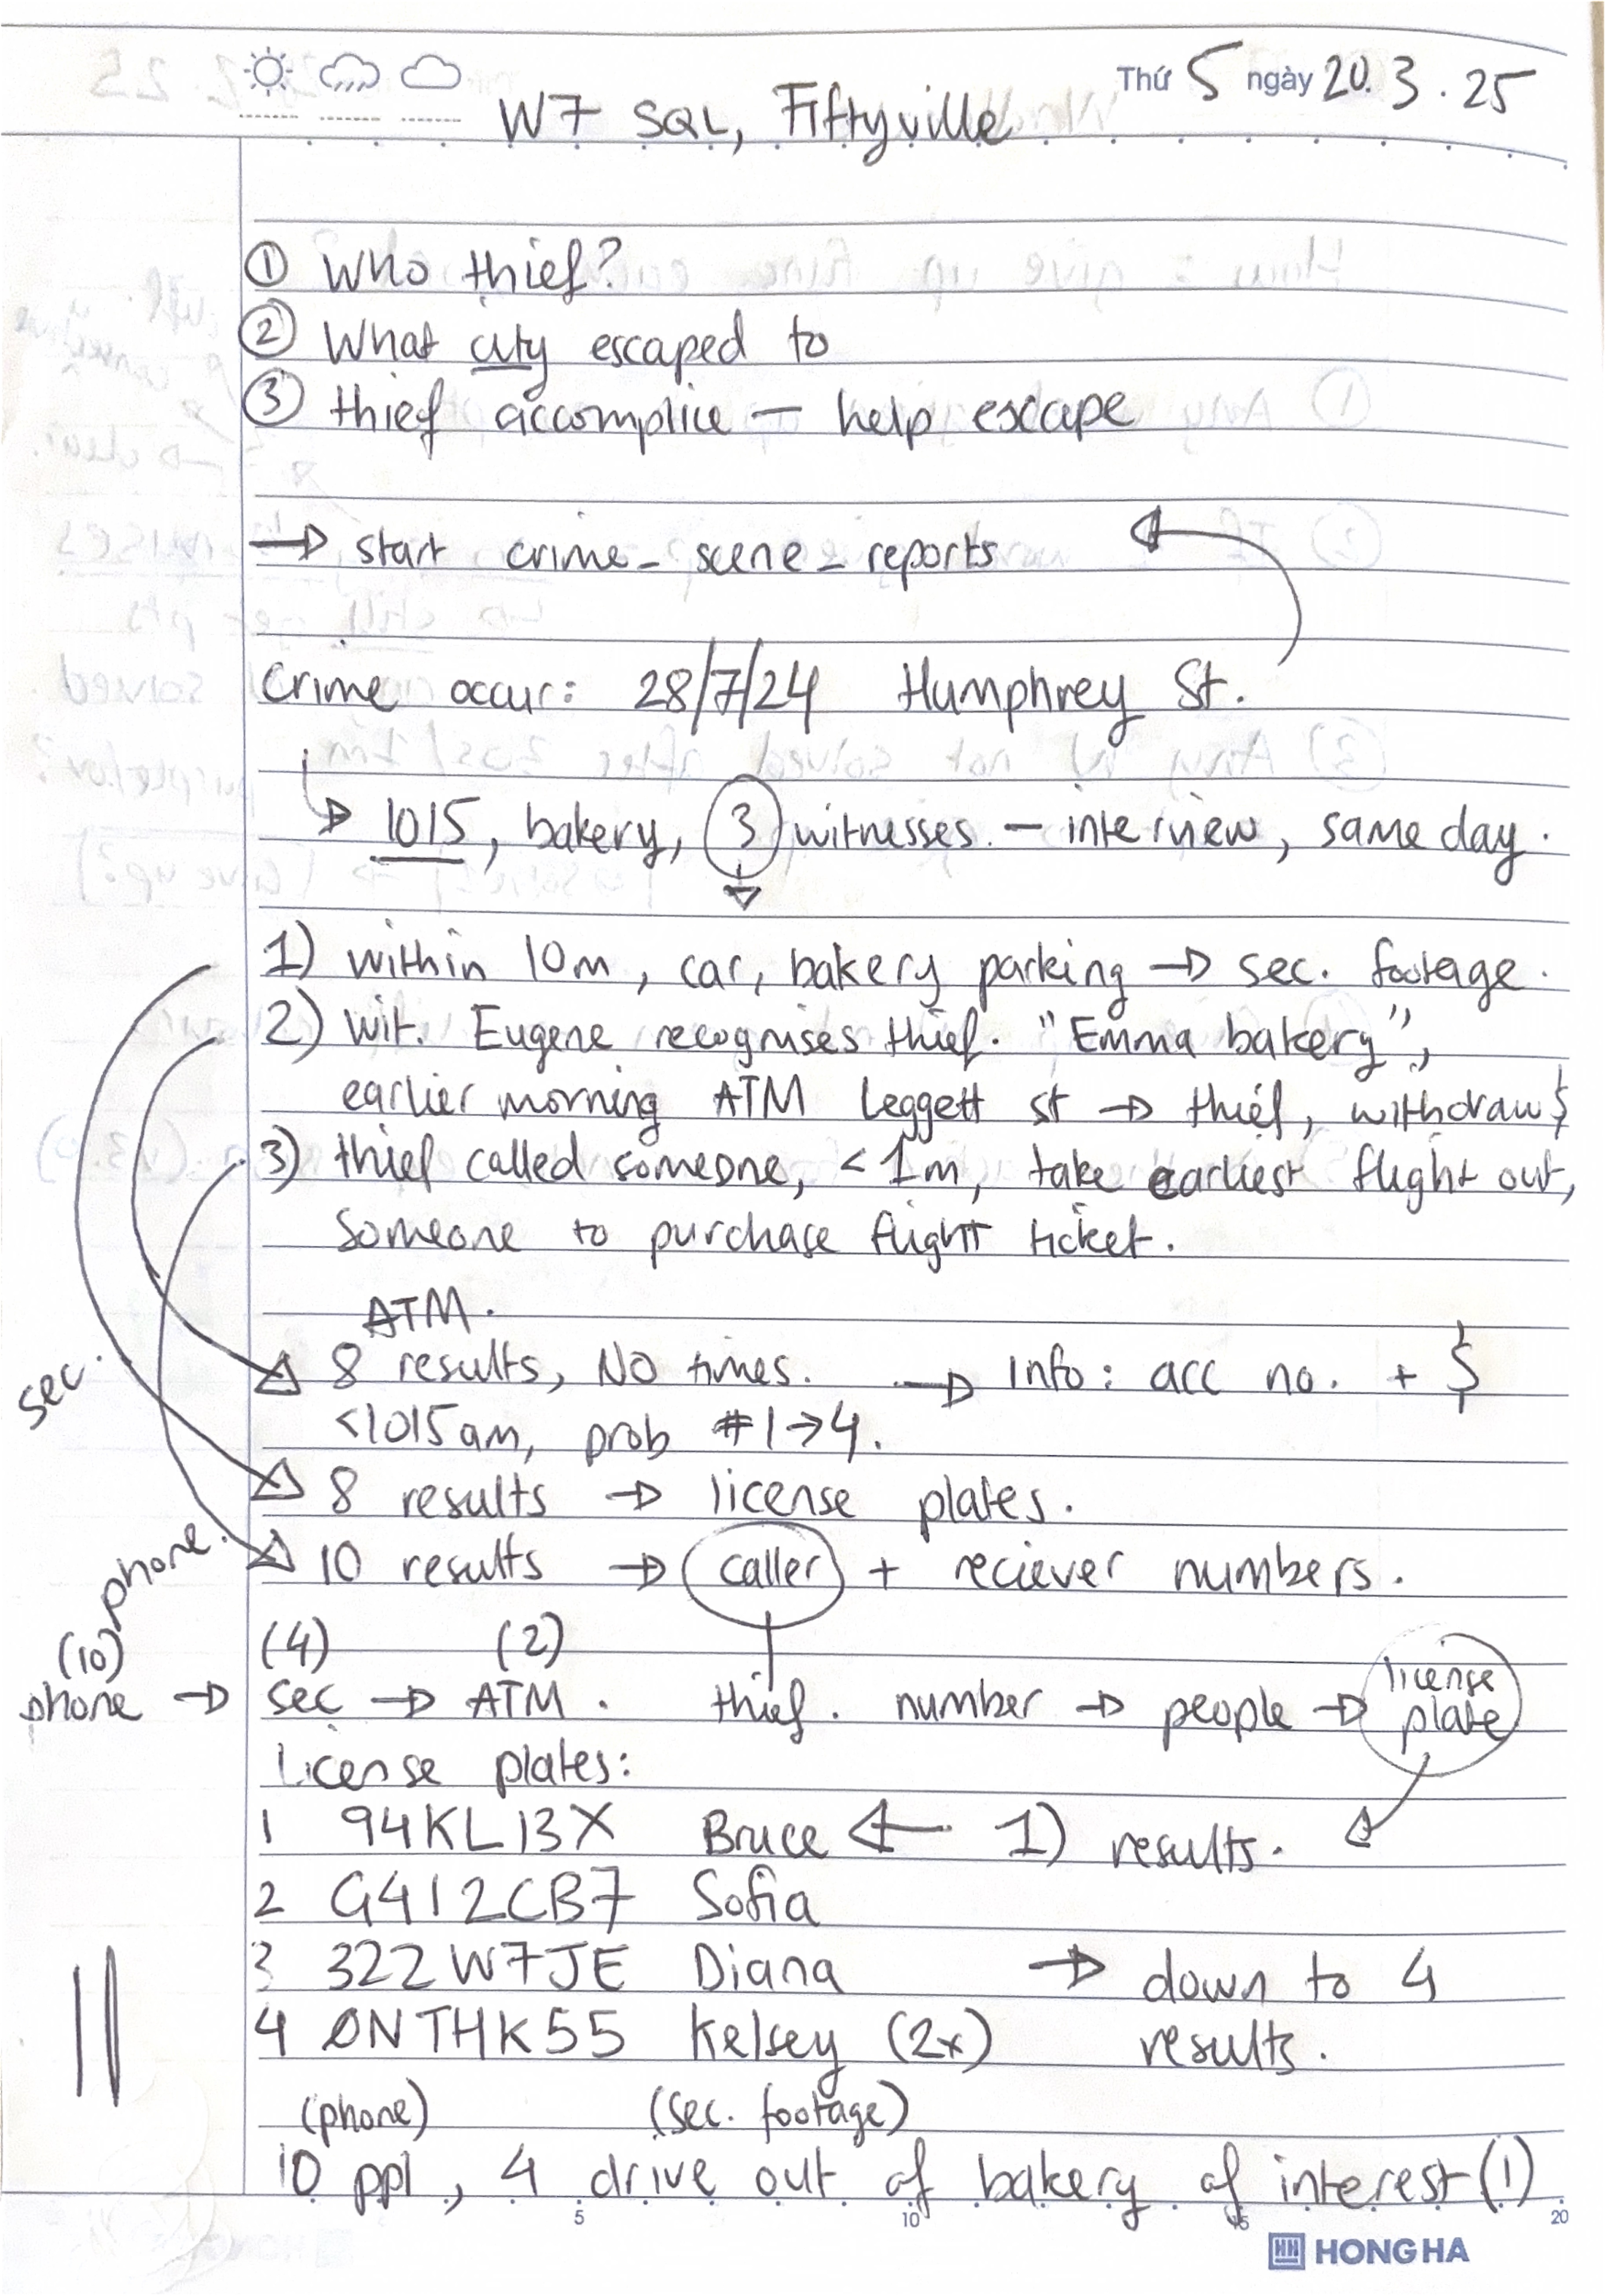 Thứ 5 ngày 20.3.25
W7 SQL, Fiftyville
① Who thief?
② What city escaped to
③ thief accomplice – help escape
→ start crime_scene_reports
Crime occur: 28/7/24 Humphrey St.
→ 1015, bakery, 3 witnesses. – interview, same day.
1) within 10m, car, bakery parking → sec. footage.
2) wit. Eugene recognises thief. "Emma bakery",
earlier morning ATM Leggett st → thief, withdraw $
3) thief called someone, < 1m, take earliest flight out,
someone to purchase flight ticket.
ATM.
8 results, NO times. → Info: acc no. + $
<1015am, prob #1→4.
sec.
8 results → license plates.
phone.
10 results → caller + reciever numbers.
(10) (4) (2)
phone → sec → ATM. thief. number → people → license plate
License plates:
1 94KL13X Bruce ← 1) results.
2 G412CB7 Sofia
3 322W7JE Diana → down to 4
4 0NTHK55 Kelsey (2x) results.
(phone) (sec. footage)
10 ppl, 4 drive out of bakery of interest (1)
5 10 15 20
HONG HA